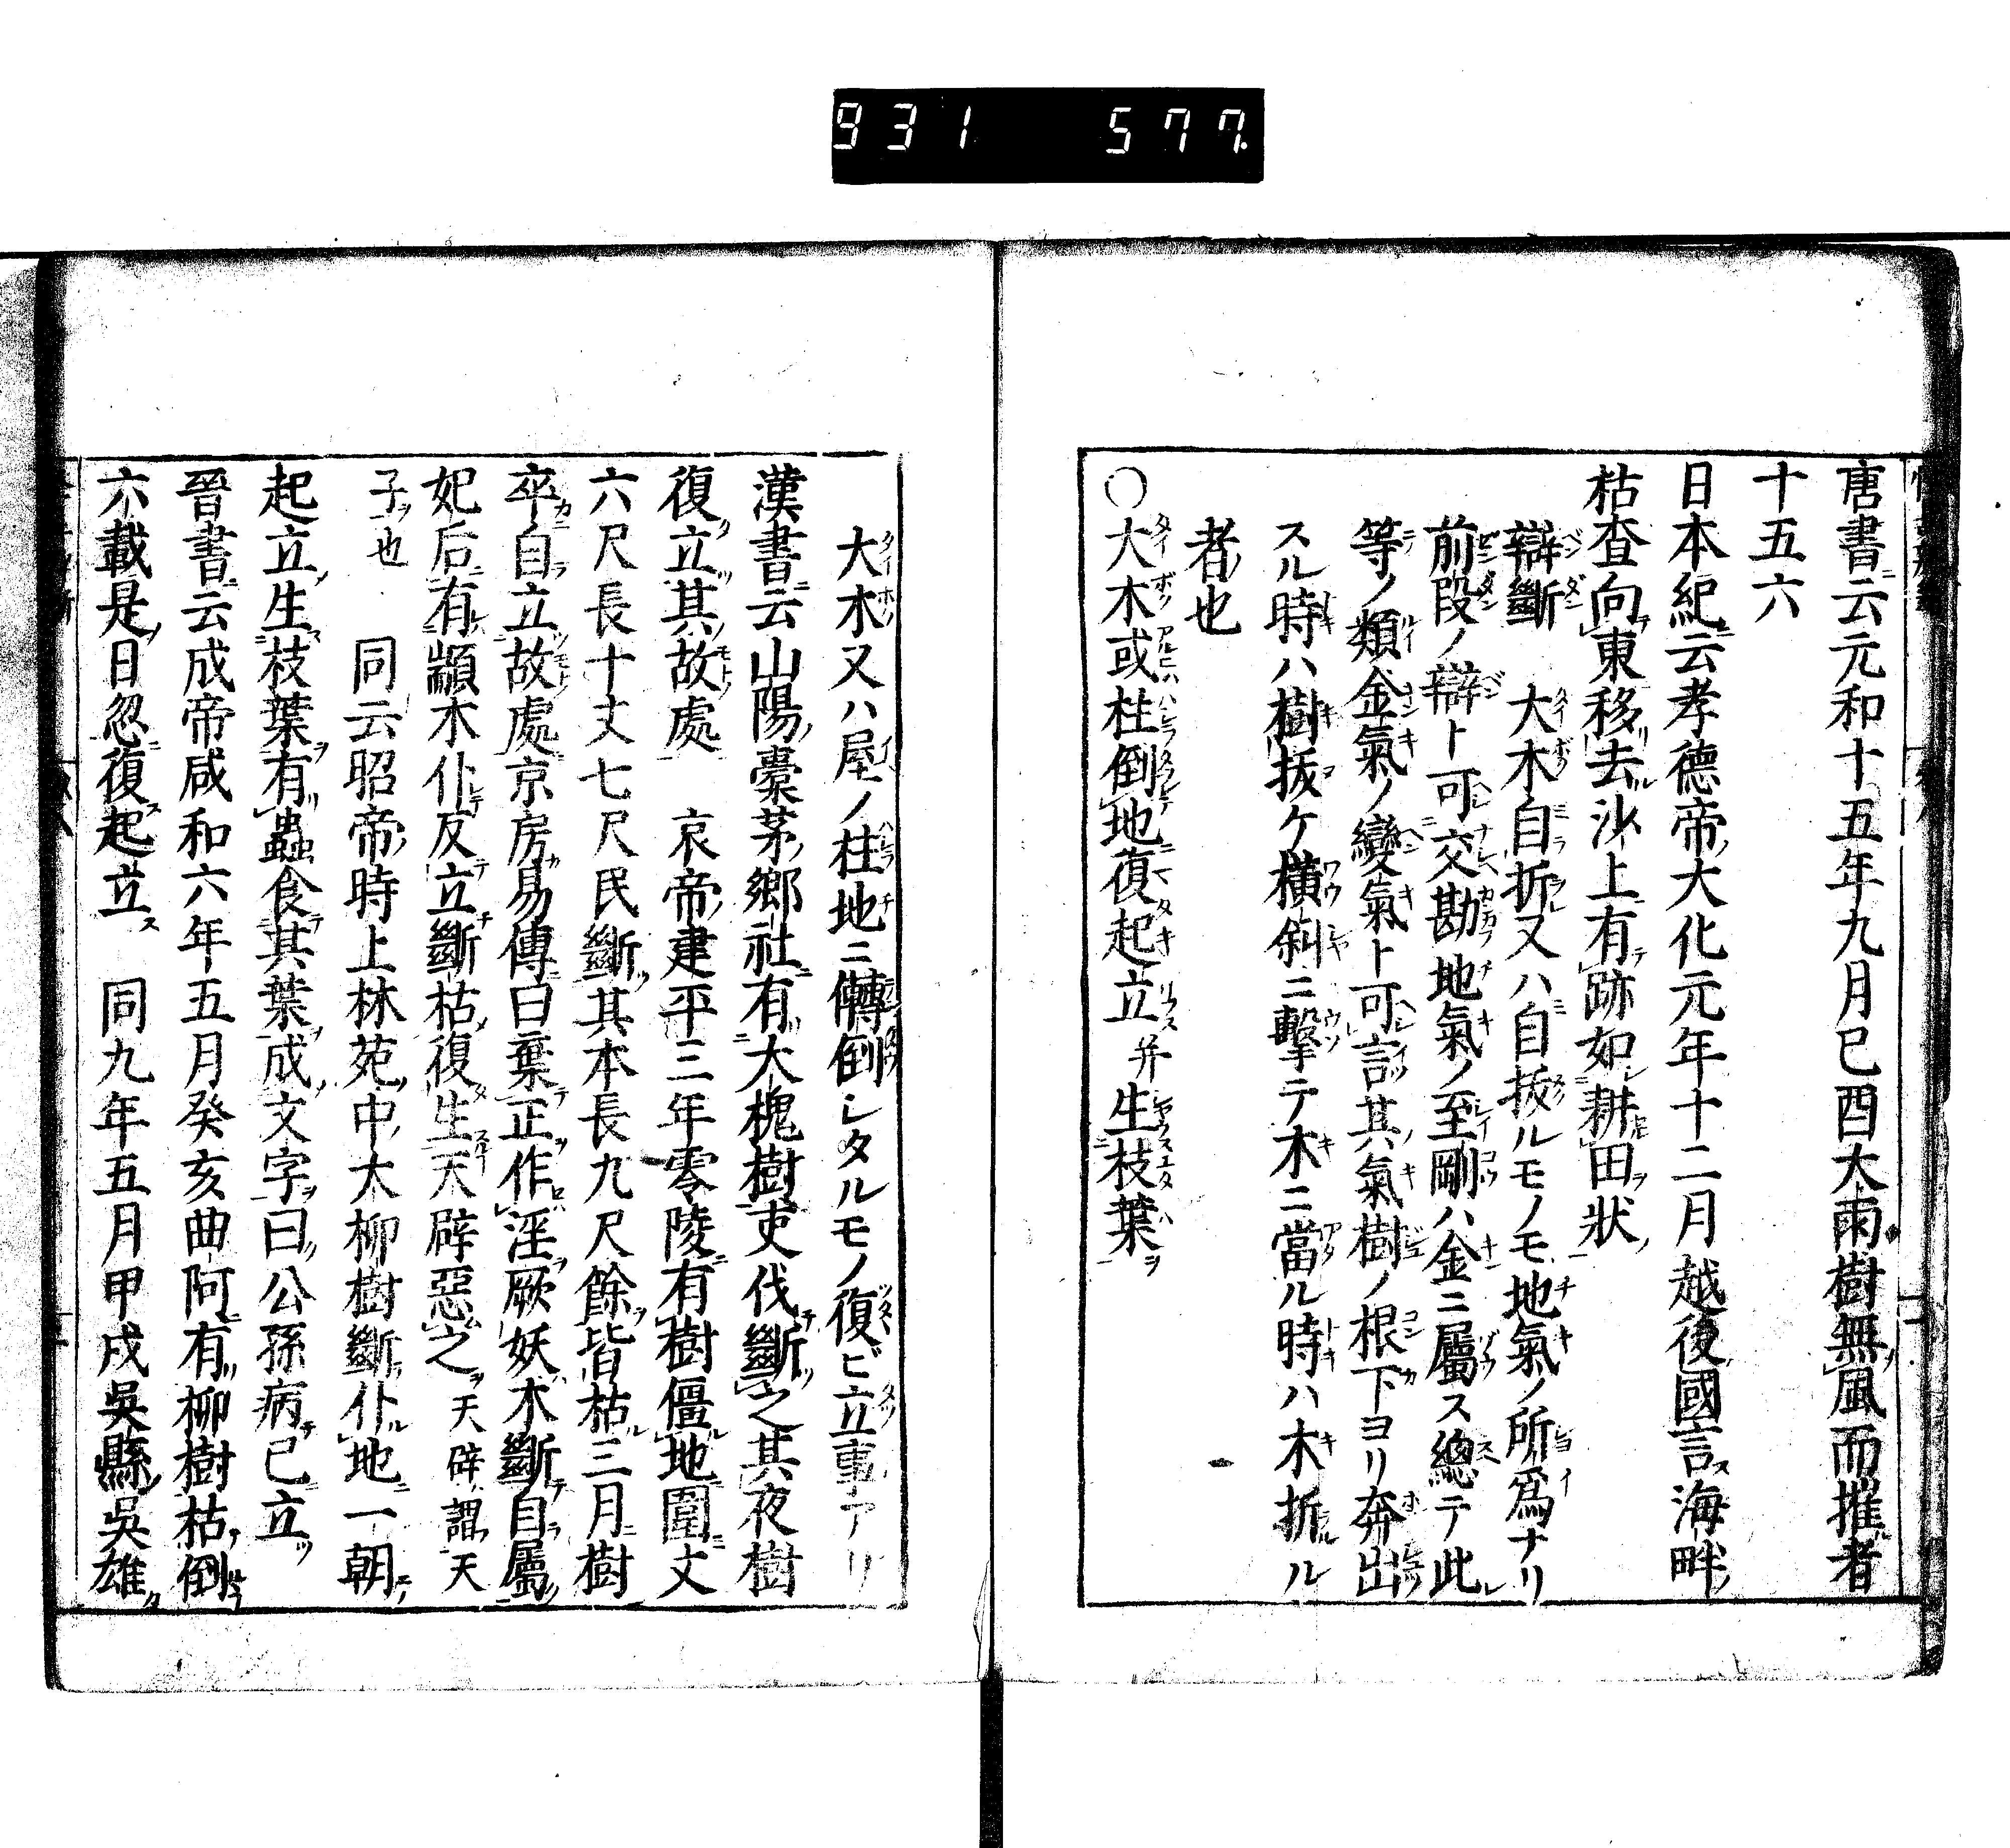 931 577
唐書云元和十五年九月己酉大雨樹無風而摧者
十五六
日本紀云孝德帝大化元年十二月越後國言海畔
枯査向東移去沙上有跡如耕田狀
辯斷　大木自折又ハ自拔ルモノモ地氣ノ所爲ナリ
前段ノ辯ト可交勘地氣ノ至剛ハ金ニ屬ス總テ此
等ノ類金氣ノ變氣ト可言其氣樹ノ根下ヨリ奔出
スル時ハ樹拔ケ横斜ニ擊テ木ニ當ル時ハ木折ル
者也
○大木或柱倒地復起立并生枝葉
大木又ハ屋ノ柱地ニ轉倒シタルモノ復ビ立事アリ
漢書云山陽橐茅鄉社有大槐樹吏伐斷之其夜樹
復立其故處　哀帝建平三年零陵有樹僵地圍丈
六尺長十丈七尺民斷其本長九尺餘皆枯三月樹
卒自立故處京房易傳曰棄正作淫厥妖木斷自屬
妃后有顓木仆反立斷枯復生天辟惡之天辟謂天
子也　同云昭帝時上林苑中大柳樹斷仆地一朝
起立生枝葉有蟲食其葉成文字曰公孫病已立
晉書云成帝咸和六年五月癸亥曲阿有柳樹枯倒
六載是日忽復起立　同九年五月甲戌吳縣吳雄